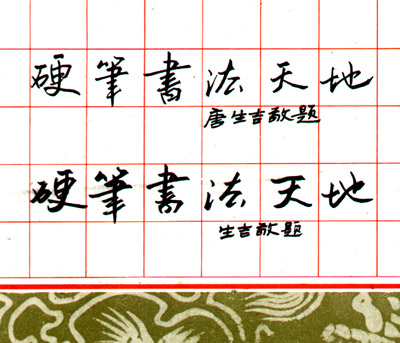 硬筆書法天地
唐生吉敬题
硬筆書法天地
生吉敬题